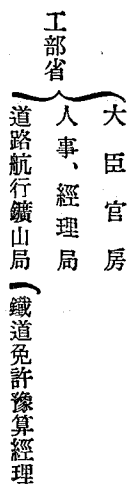 工部省
大臣官房
人事、經理局
道路航行鑛山局
鐵道免許豫算經理